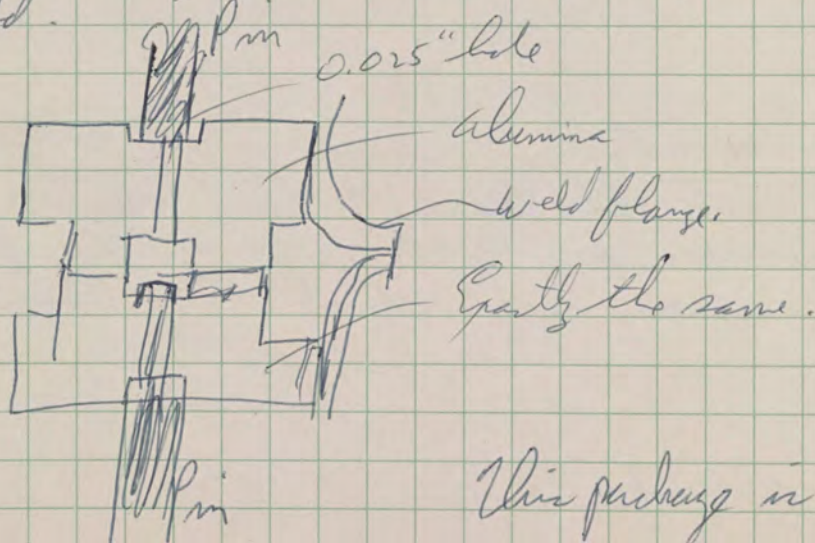 d.
Pin
0.025" hole
alumina
weld flange.
Exactly the same.
Pin
This package is